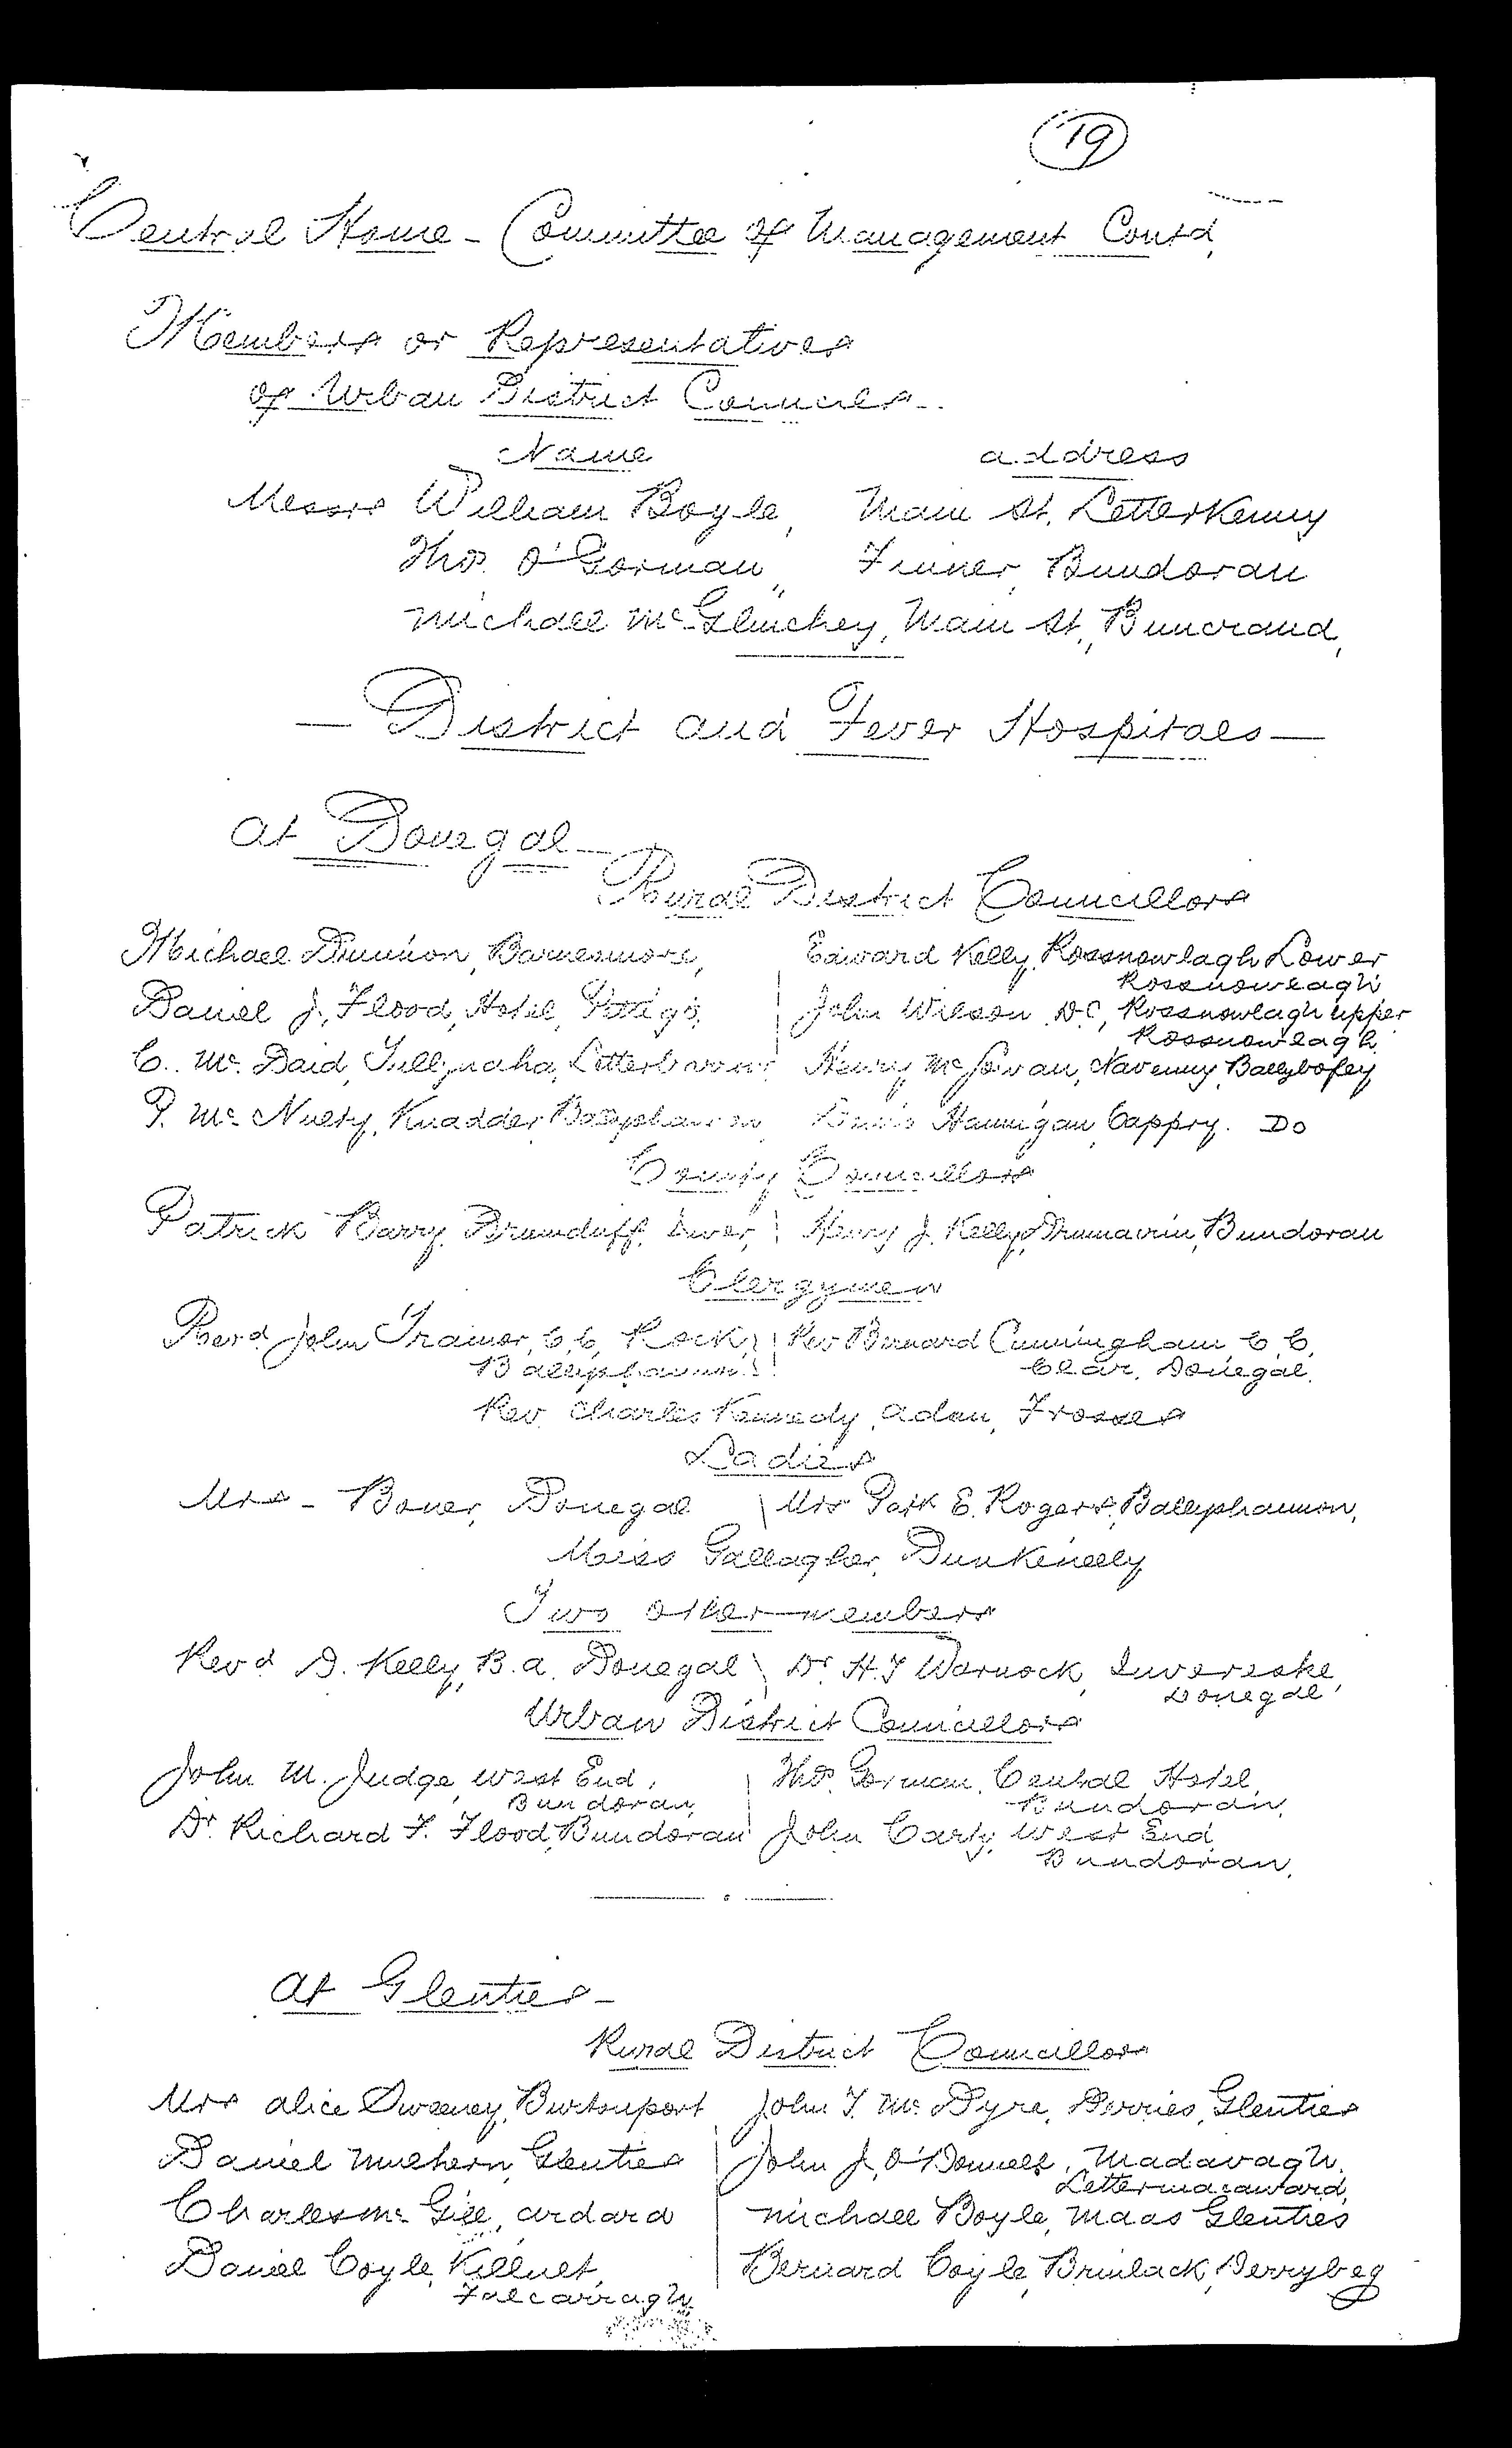 19
Central Home - Committee of Management Contd,
Members or Representatives
of Urban District Councils -
Name address
Messrs William Boyle, Main St, Letterkenny
Thos. O'Gorman, Finner, Bundoran
Michael McGlinchey, Main St., Buncrana,
— District and Fever Hospitals —
At Donegal -
Rural District Councillors
Michael Dunnion, Barnesmore, Edward Kelly, Rossnowlagh Lower
Rossnowlagh
Daniel J. Flood, Hotel, Pettigo, John Wilson D.C, Rossnowlagh upper
Rossnowlagh
C. Mc Daid, Tullynaha, Letterbarrow, Henry Mc Gowan, Navenny, Ballybofey
P. Mc Nulty, Knadder, Ballyshannon, Hannigan, Cappry. Do
County Councillors
Patrick Barry, Drumduff, Inver, Henry J. Kelly, Drumacrin, Bundoran
Clergymen
Revd. John Trainor, C.C, Rock, Rev Bernard Cunningham C.C.
Ballyshannon. Clar, Donegal.
Rev. Charles Kennedy, Frosses
Ladies
Mrs - Boner, Donegal Mrs Patk E. Rogers, Ballyshannon,
Miss Gallagher, Dunkineely
Two other members
Revd D. Kelly, B.A. Donegal Dr. H.T Warnock, Donegal
Urban District Councillors
John M. Judge, West End, Thos. Gorman, Central Hotel,
Bundoran, Bundoran,
Dr. Richard F. Flood, Bundoran John Carty, West End,
Bundoran,
At Glenties -
Rural District Councillors
Mrs Alice Sweeney, Burtonport John T. Mc Dyre, Derries, Glenties
Daniel Mulhern, Glenties John J. O'Donnell, Madavagh,
Lettermacaward,
Charles Mc Gill, Ardara Michael Boyle, Maas Glenties
Daniel Coyle, Killult, Bernard Coyle, Brinlack, Derrybeg
Falcarragh